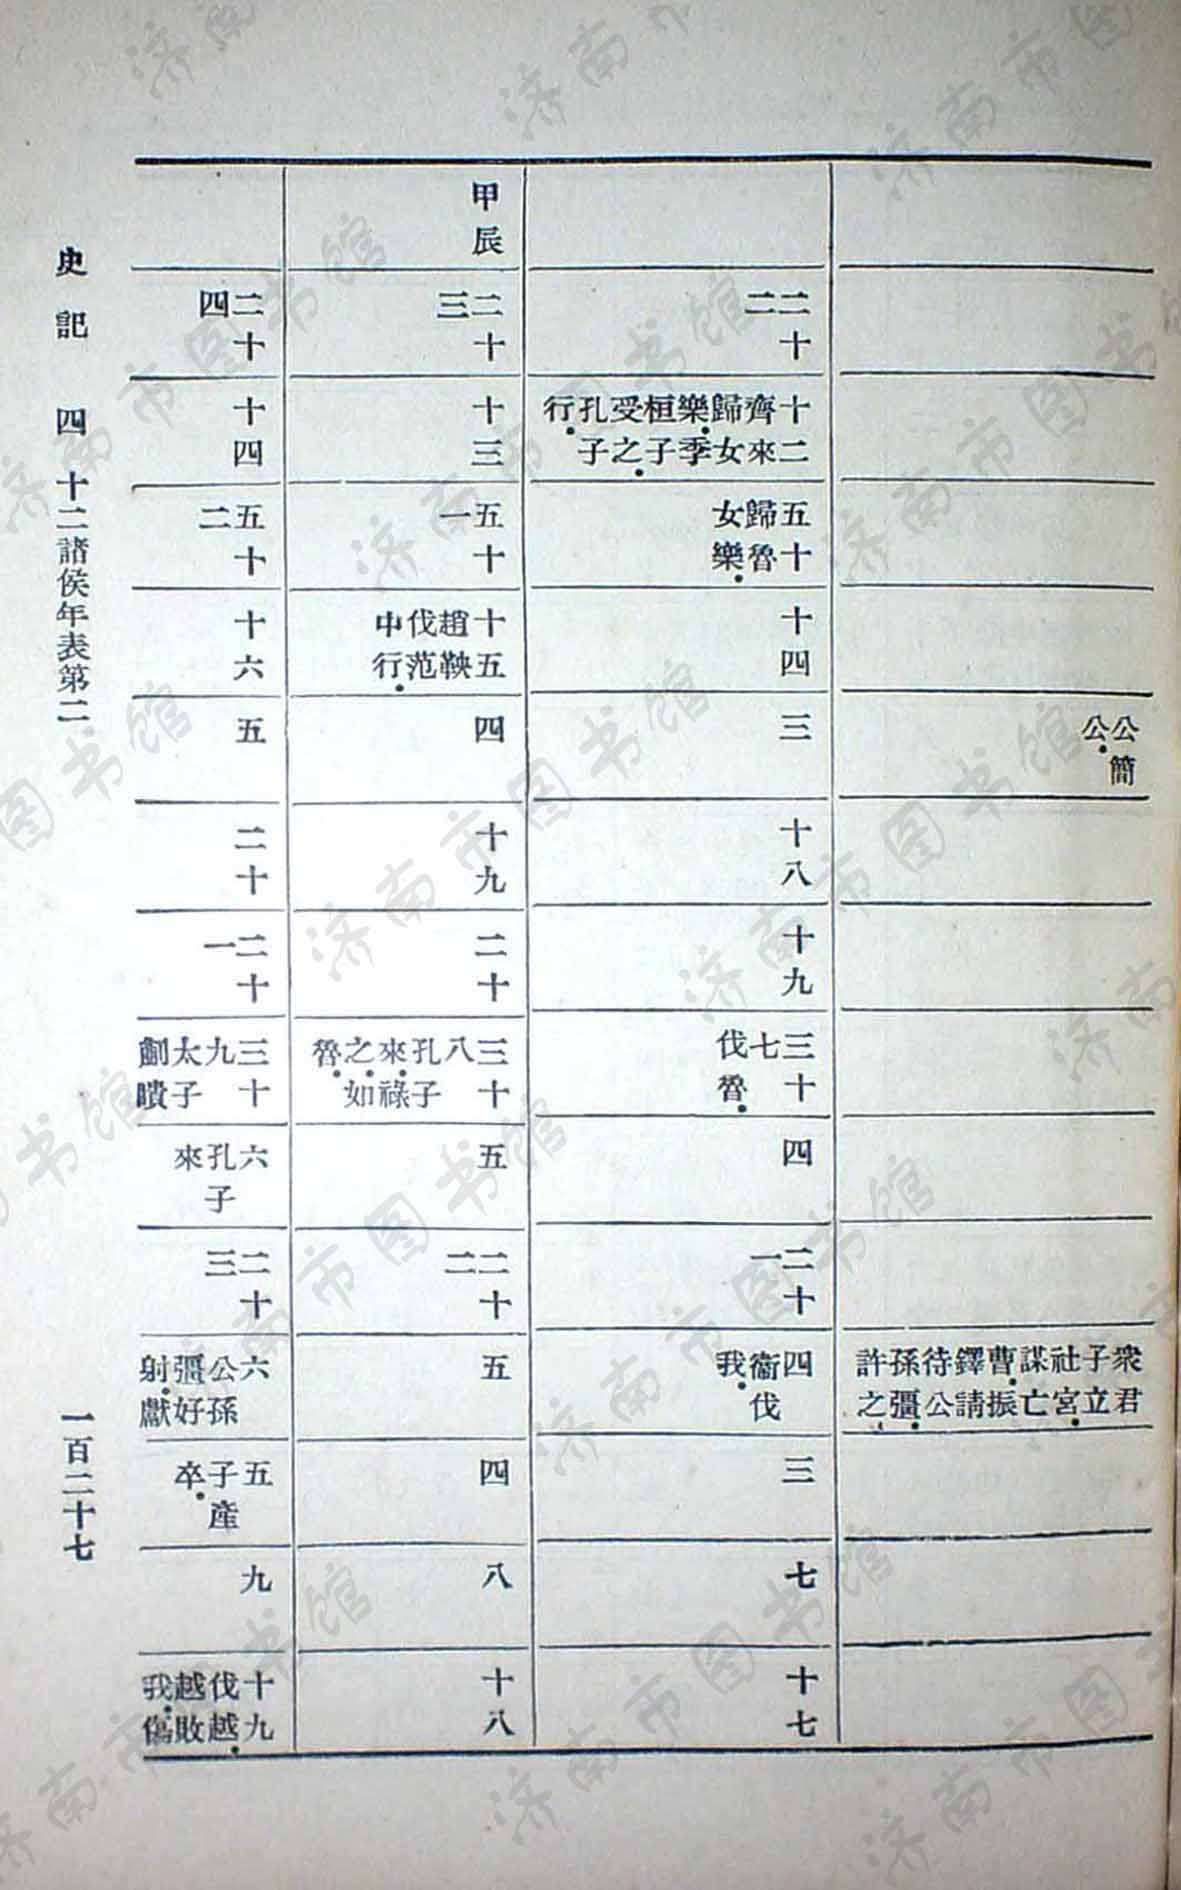 公簡
公
衆君
子立
社宮
謀亡
曹振
鐸請
待公
孫彊
許之
二十
二
十二
齊來
歸女
樂季
桓子
受之
孔子
行
五十
歸魯
女樂
十四
三
十八
十九
三十
七
伐魯
四
二十
一
四
衞伐
我
三
七
十七
甲辰
二十
三
十三
五十
一
十五
趙鞅
伐范
中行
四
十九
二十
三十
八
孔子
來
祿
之如
魯
五
二十
二
五
四
八
十八
二十
四
十四
五十
二
十六
五
二十
二十
一
三十
九
太子
蒯聵
六
孔子
來
二十
三
六
公孫
彊好
射獻
五
子產
卒
九
十九
伐越
越敗
我傷
史記 四 十二諸侯年表第二
一百二十七
济南市图书馆